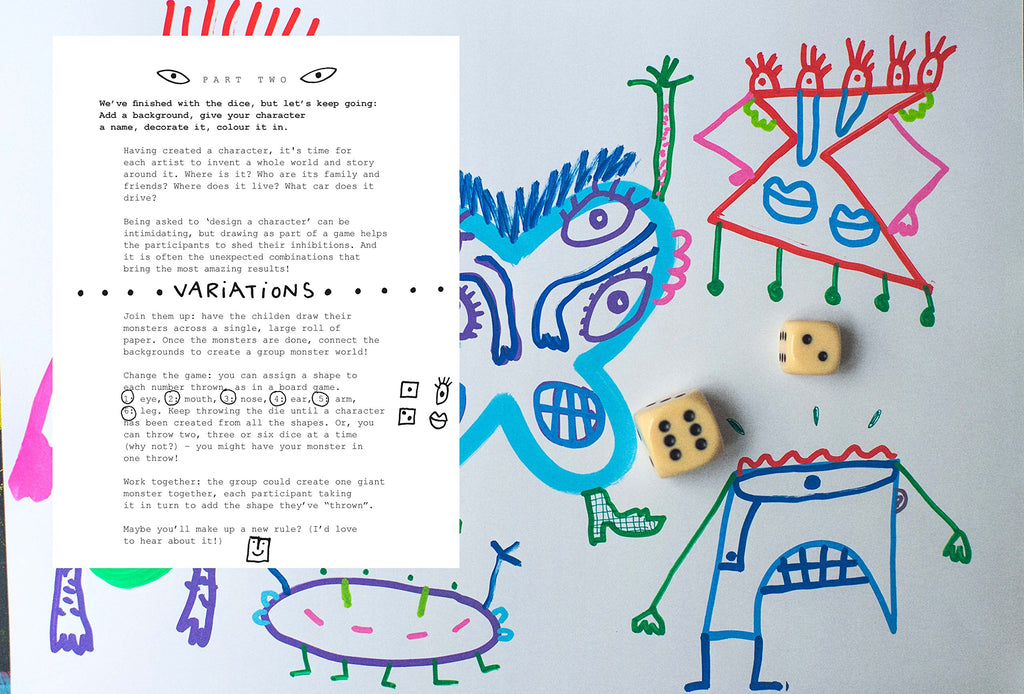 PART TWO
We've finished with the dice, but let's keep going:
Add a background, give your character
a name, decorate it, colour it in.
Having created a character, it's time for
each artist to invent a whole world and story
around it. Where is it? Who are its family and
friends? Where does it live? What car does it
drive?
Being asked to 'design a character' can be
intimidating, but drawing as part of a game helps
the participants to shed their inhibitions. And
it is often the unexpected combinations that
bring the most amazing results!
VARIATIONS
Join them up: have the childen draw their
monsters across a single, large roll of
paper. Once the monsters are done, connect the
backgrounds to create a group monster world!
Change the game: you can assign a shape to
each number thrown, as in a board game.
1: eye, 2: mouth, 3: nose, 4: ear, 5: arm,
6: leg. Keep throwing the die until a character
has been created from all the shapes. Or, you
can throw two, three or six dice at a time
(why not?) – you might have your monster in
one throw!
Work together: the group could create one giant
monster together, each participant taking
it in turn to add the shape they've "thrown".
Maybe you'll make up a new rule? (I'd love
to hear about it!)